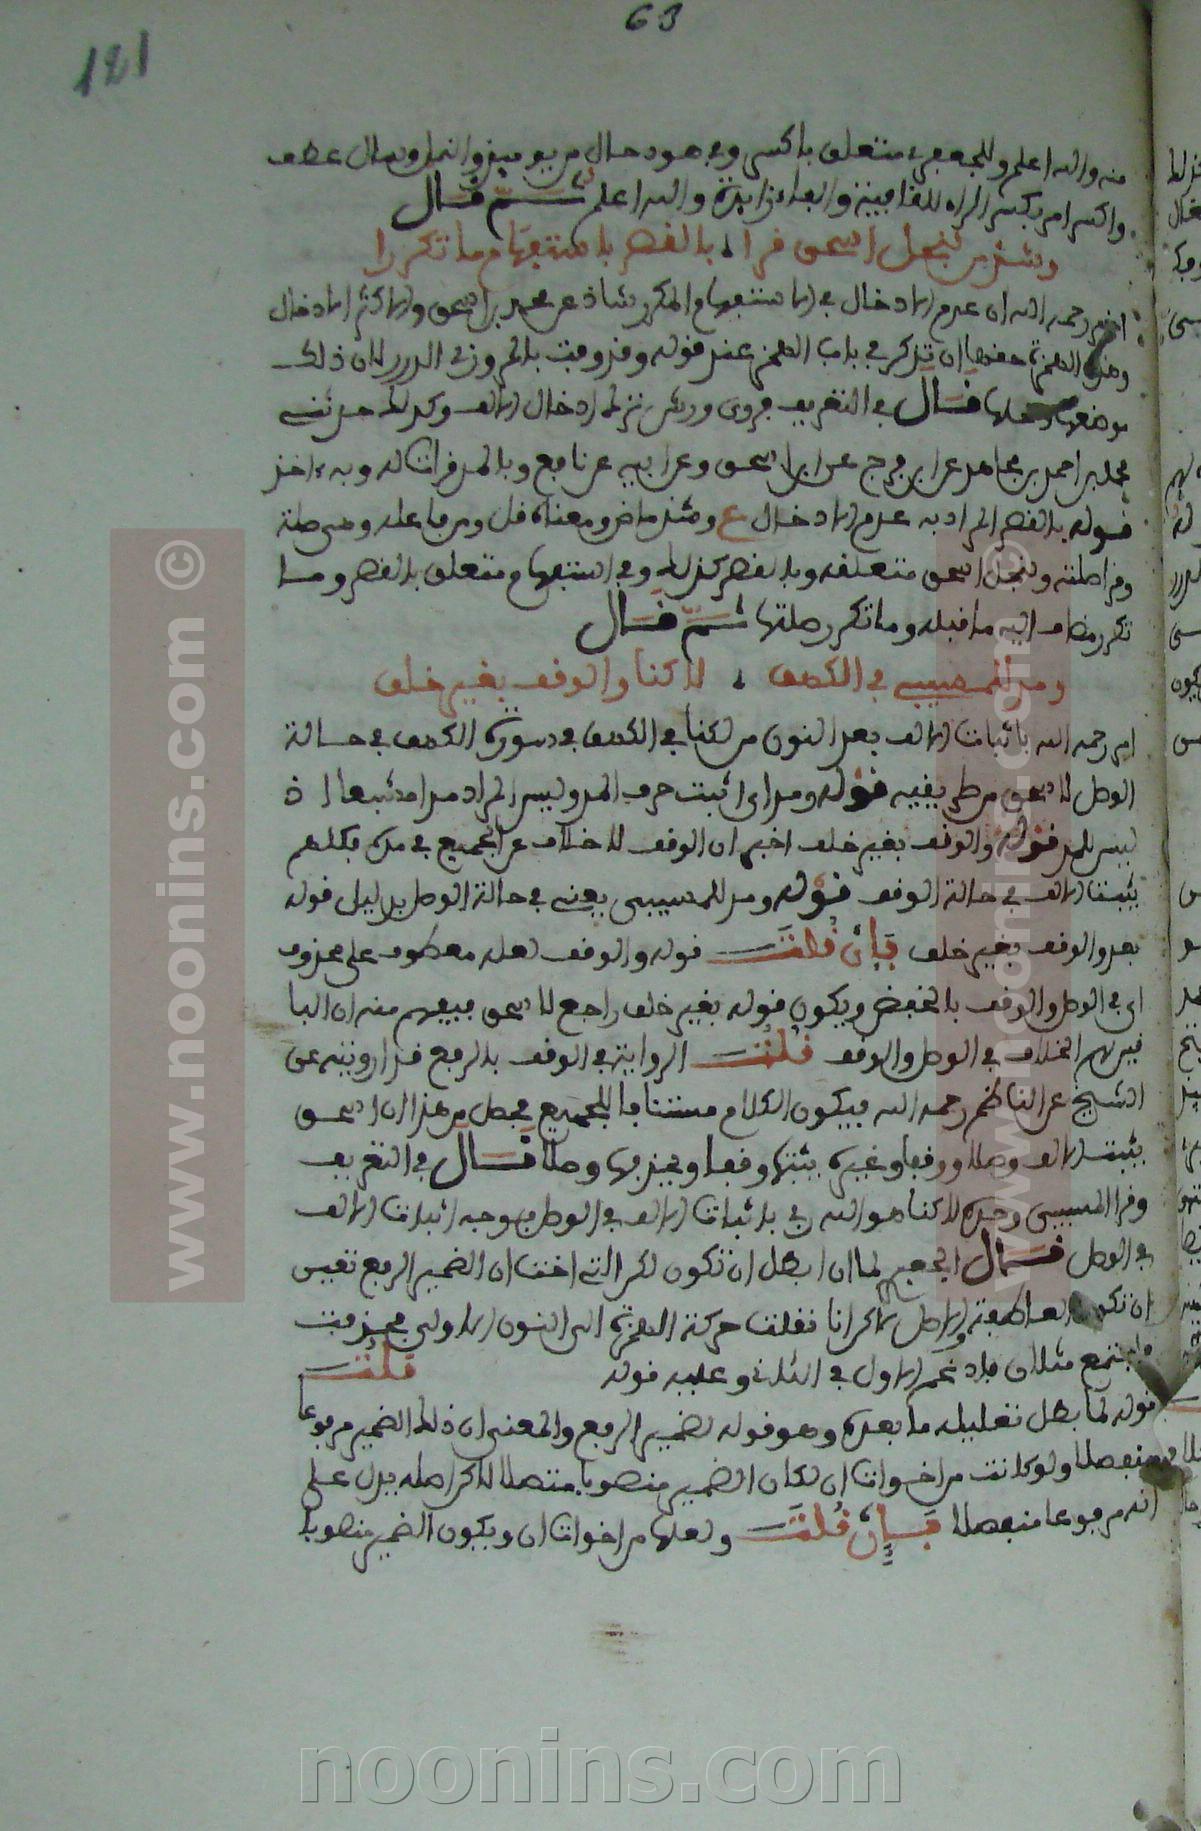 63
121
منه والله اعلم وللجعبري متعلق باكسر وهود حال من يوميذ والنمل وسال عطف
واكسر امر بكسر الراء للقافية والفاء زايدة والله اعلم ثم قال
وشذ من لنجل اسحق قرا بالقصر باستفهام ما تكررا
اخبر رحمه الله ان عدم الادخال في الاستفهام المكرر شاذ عن محمد بن اسحق ولاكثر الادخال
وهذه الهمزة حقها ان تذكر في باب الهمز عند قوله ومد وقت بالحرو في الدرر لان ذلك
موضعها ومحلها قال في التعريف فروى ورش بترك ادخال الالف وكذلك حدثني
محمد بن احمد بن مجاهد عن ابن فرج عن ابن اسحق وعن ابيه عن نافع وبالمد قرات له وبه ءاخذ
قوله بالقصر المراد به عدم الادخال ع وشذ ماض ومعناه قل ومن فاعله وهي صلة
وقرا صلته ولنجل اسحق متعلقه وبالقصر كذلك وفي استفهام متعلق بالقصر وما
تكرر مضاف اليه ما قبله وما تكرر صلتها ثم قال
ومد للمسيبي في الكهف لاكنا والوقف بغير خلف
امر رحمه الله باثبات الالف بعد النون من لكنا في الكهف في سورة الكهف في حالة
الوصل لاسحق من طريقيه قوله ومد اي اثبت حرف المد وليس المراد مدا مشبعا اذ
ليس للمد قوله والوقف بغير خلف اخبر ان الوقف لا خلاف عن الجميع في مده فكلهم
يثبت الالف في حالة الوقف قوله ومد للمسيبي يعني في حالة الوصل بدليل قوله
بعد والوقف بغير خلف فإن قلت قوله والوقف لعله معطوف على محذوف
اي في الوصل والوقف بالخفض ويكون قوله بغير خلف راجع لاسحق فيفهم منه ان البا
قين لهم الخلاف في الوصل والوقف قلت الرواية في الوقف بالرفع قد ارويته عن
الشيخ عن الناظم رحمه الله فيكون الكلام مستانفا للجميع فحصل من هذا ان اسحق
يثبت الالف وصلا ووقفا وغيره يثبتها وقفا ويحذفها وصلا قال في التعريف
وقرا المسيبي وحده لاكنا هو الله ربي باثبات الالف في الوصل ووجه اثبات الالف
في الوصل قال الجعبري لما ان ابطل ان تكون لكن التي اخت ان الضمير الرفع تعين
ان تكون العاطفة والاصل لاكن انا نقلت حركة الهمزة الى النون الاولى فحذفت
واجتمع مثلان فادغم الاول في الثاني وعليه قوله قلت
قوله لما بطل تعليله ما بعده وهو قوله لضمير الرفع والمعنى ان ذلك الضمير مرفوعا
منفصلا ولو كانت من اخوات ان لكان الضمير منصوبا متصلا لاكن اصله يدل على
انه مرفوعا منفصلا فإن قلت ولعلها من اخوات ان ويكون الضمير منصوبا
www.noonins.com ©
www.noonins.com ©
noonins.com